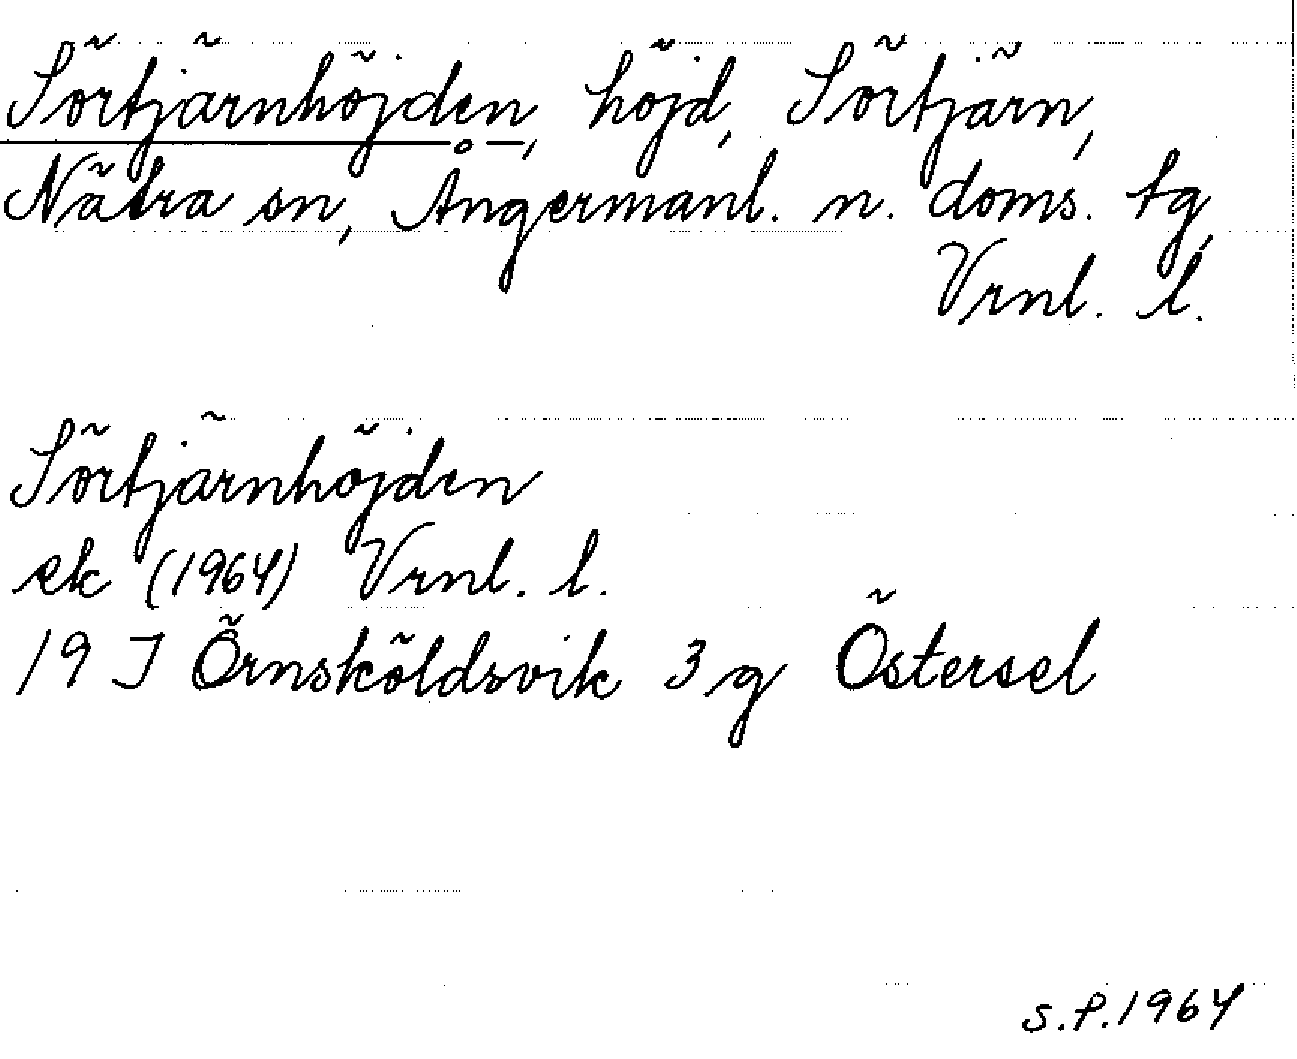 Sörtjärnhöjden, höjd, Sörtjärn,
Nätra sn, Ångermanl. n. doms. tg,
Vrnl. l.
Sörtjärnhöjden
ek (1964) Vrnl. l.
19 J Örnsköldsvik 3 g Östersel
S.P.1964